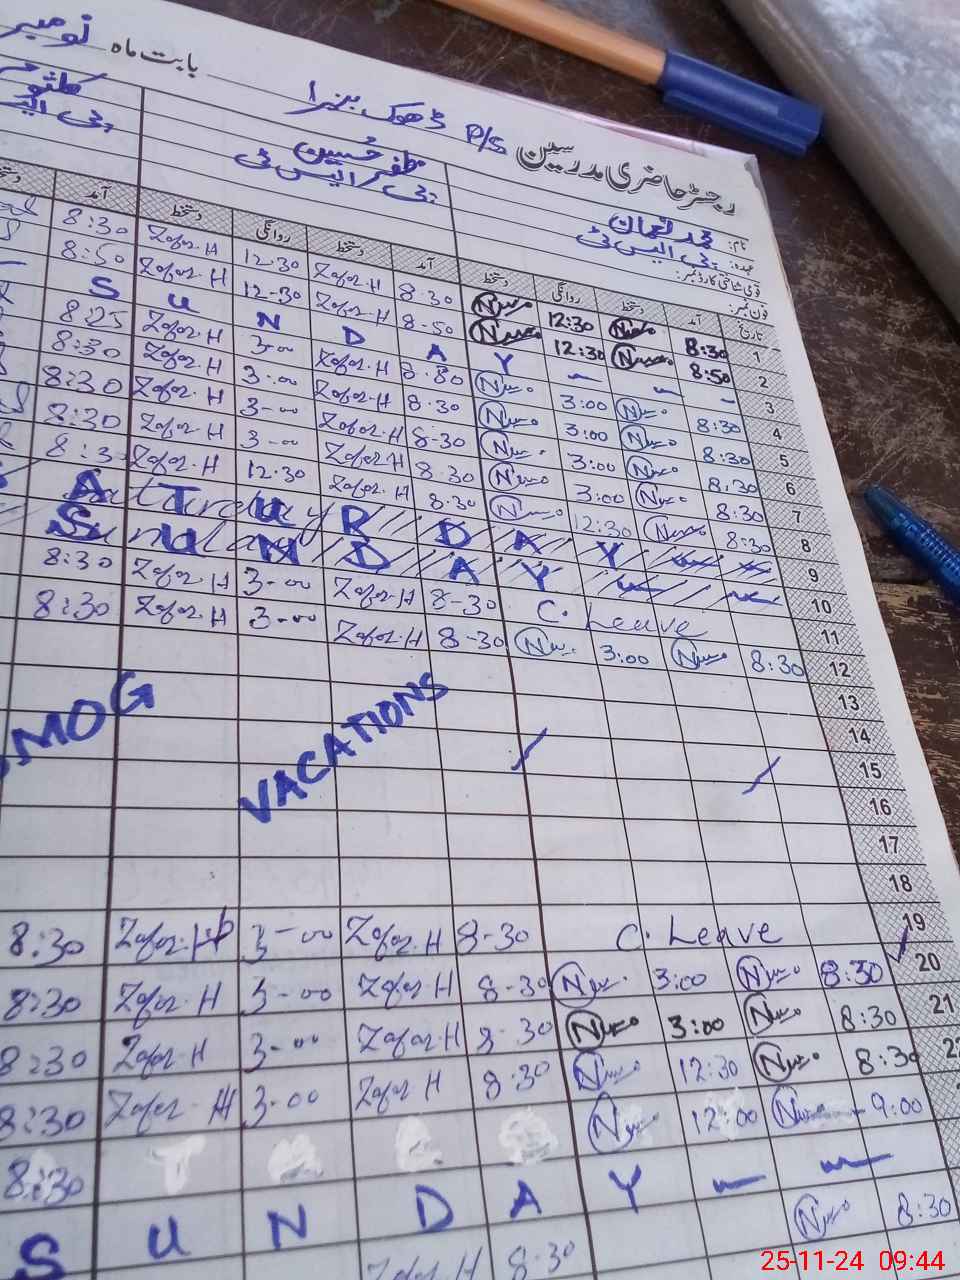 رجسٹر حاضری مدرسین P/S ڈھوک بنزا بابت ماہ نومبر
نام: محمد نعمان مظفر حسین کلثوم
عہدہ: پی ایس ٹی پی ایس ٹی
قومی شناختی کارڈ نمبر:
فون نمبر:
تاریخ آمد دستخط روانگی دستخط آمد دستخط روانگی دستخط آمد
1 8:30 12:30 8-30 Zafar.H 12-30 Zafar-H 8:30
2 8:50 12:30 8-50 Zafar-H 12-30 Zafar.H 8:50
3 S U N D A Y
4 8:30 3:00 8-30 Zafar.H 3-00 Zafar.H 8:25
5 8:30 3:00 8-30 Zafar.H 3-00 Zafar.H 8:30
6 8:30 3:00 8-30 Zafar.H 3-00 Zafar.H 8:30
7 8:30 3:00 8-30 Zafar.H 3-00 Zafar.H 8:30
8 8:30 12:30 8-30 Zafar.H 12-30 Zafar.H
9 S A T U R D A Y
10 S U N D A Y
11 C. Leave 8-30 Zafar-H 3-00 Zafar.H 8:30
12 8:30 3:00 8-30 Zafar.H 3-00 Zafar.H 8:30
13
14
15
SMOG VACATIONS
16
17
18
19 C. Leave 8-30 Zafar.H 3-00 Zafar.H 8:30
20 8:30 3:00 8-30 Zafar.H 3-00 Zafar.H 8:30
21 8:30 3:00 8-30 Zafar.H 3-00 Zafar.H 8:30
22 8:30 12:30 8-30 Zafar H 3-00 Zafar-H 8:30
9:00 12:00 8:30
S U N D A Y
8:30 8-30 Zafar.H
25-11-24 09:44